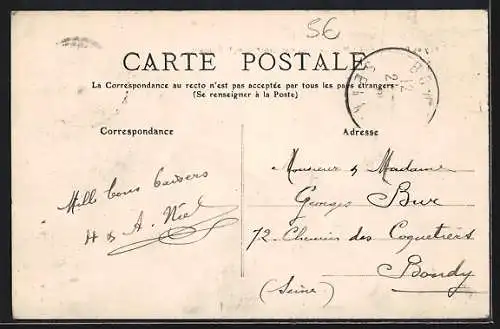 56
CARTE POSTALE
La Correspondance au recto n'est pas acceptée par tous les pays étrangers
(Se renseigner à la Poste)
Correspondance
Mille bons baisers
H & A. Niel
Adresse
Monsieur & Madame
Georges Bure
72 Chemin des Coquetiers
Bondy
(Seine)